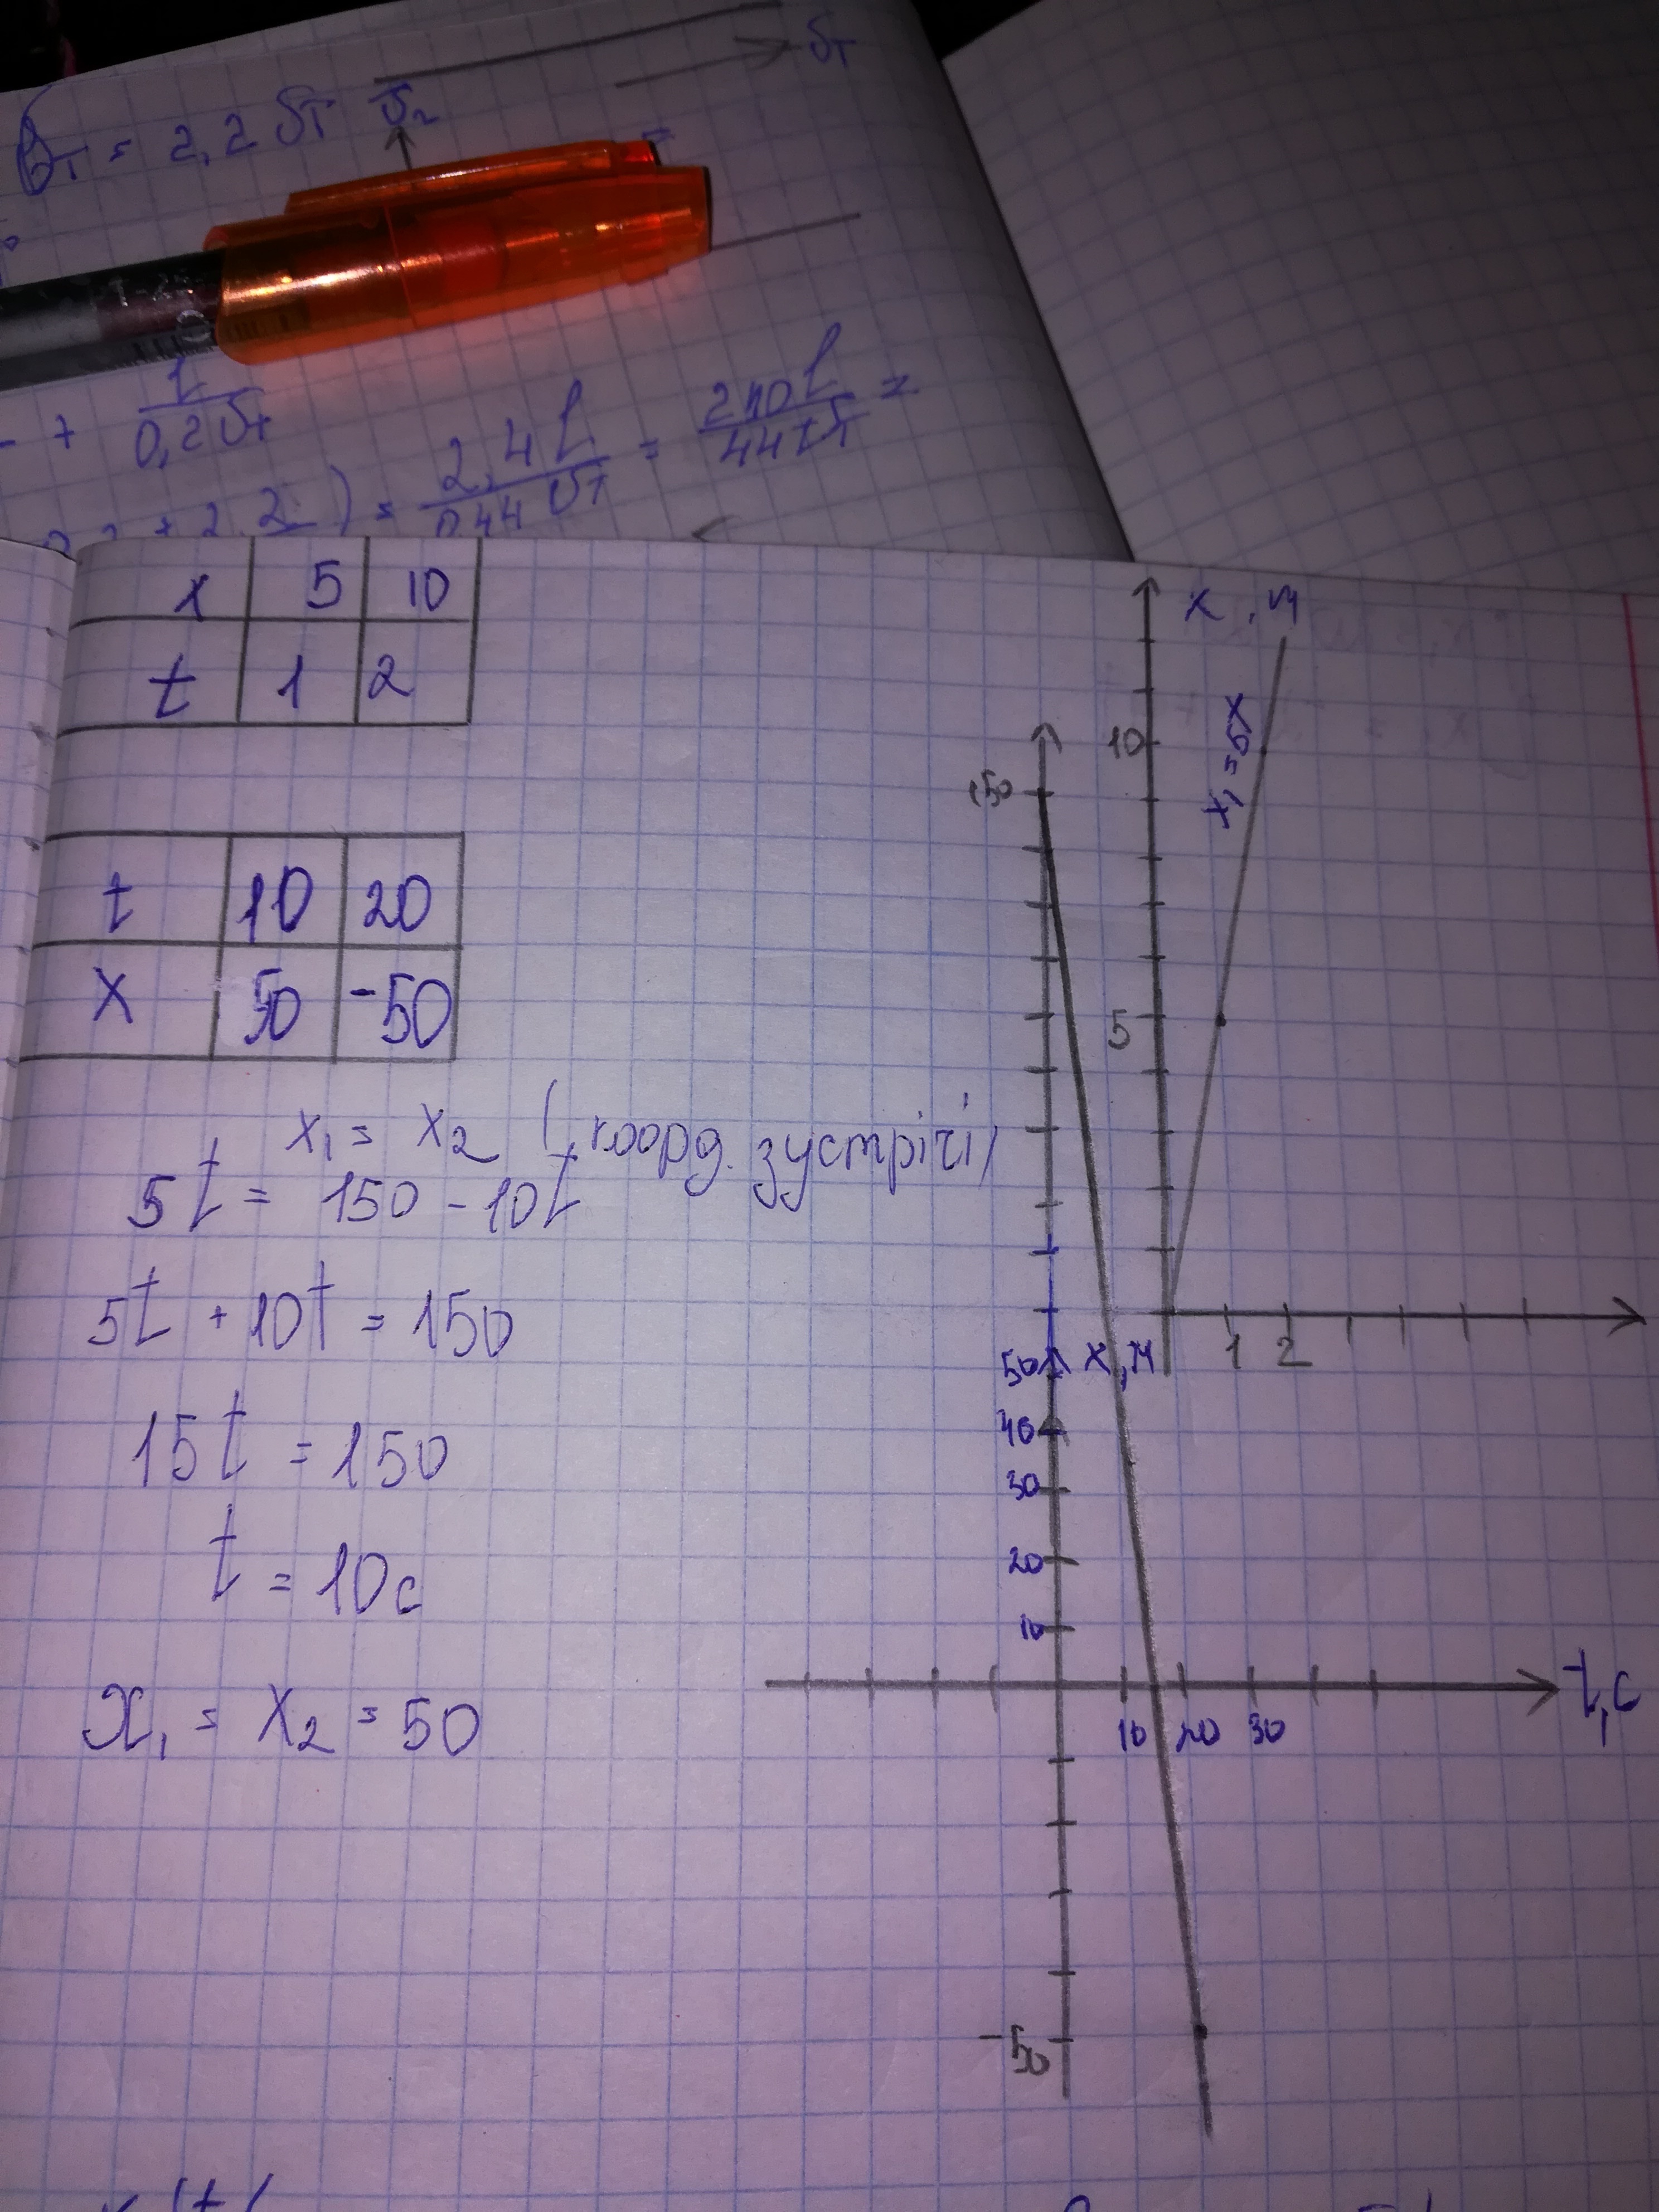 = 2,2 υт υ₂
υт
+ l/0,2υт
) = 2,4l/0,44υт = 240l/44υт =
x 5 10
t 1 2
t 10 20
x 50 -50
x₁ = x₂ (коорд. зустрічі)
5t = 150 - 10t
5t + 10t = 150
15t = 150
t = 10c
x₁ = x₂ = 50
x, м
10
x₁ = 5x
5
1 2
150
50 x, м
40
30
20
10
10 20 30
t, c
-50